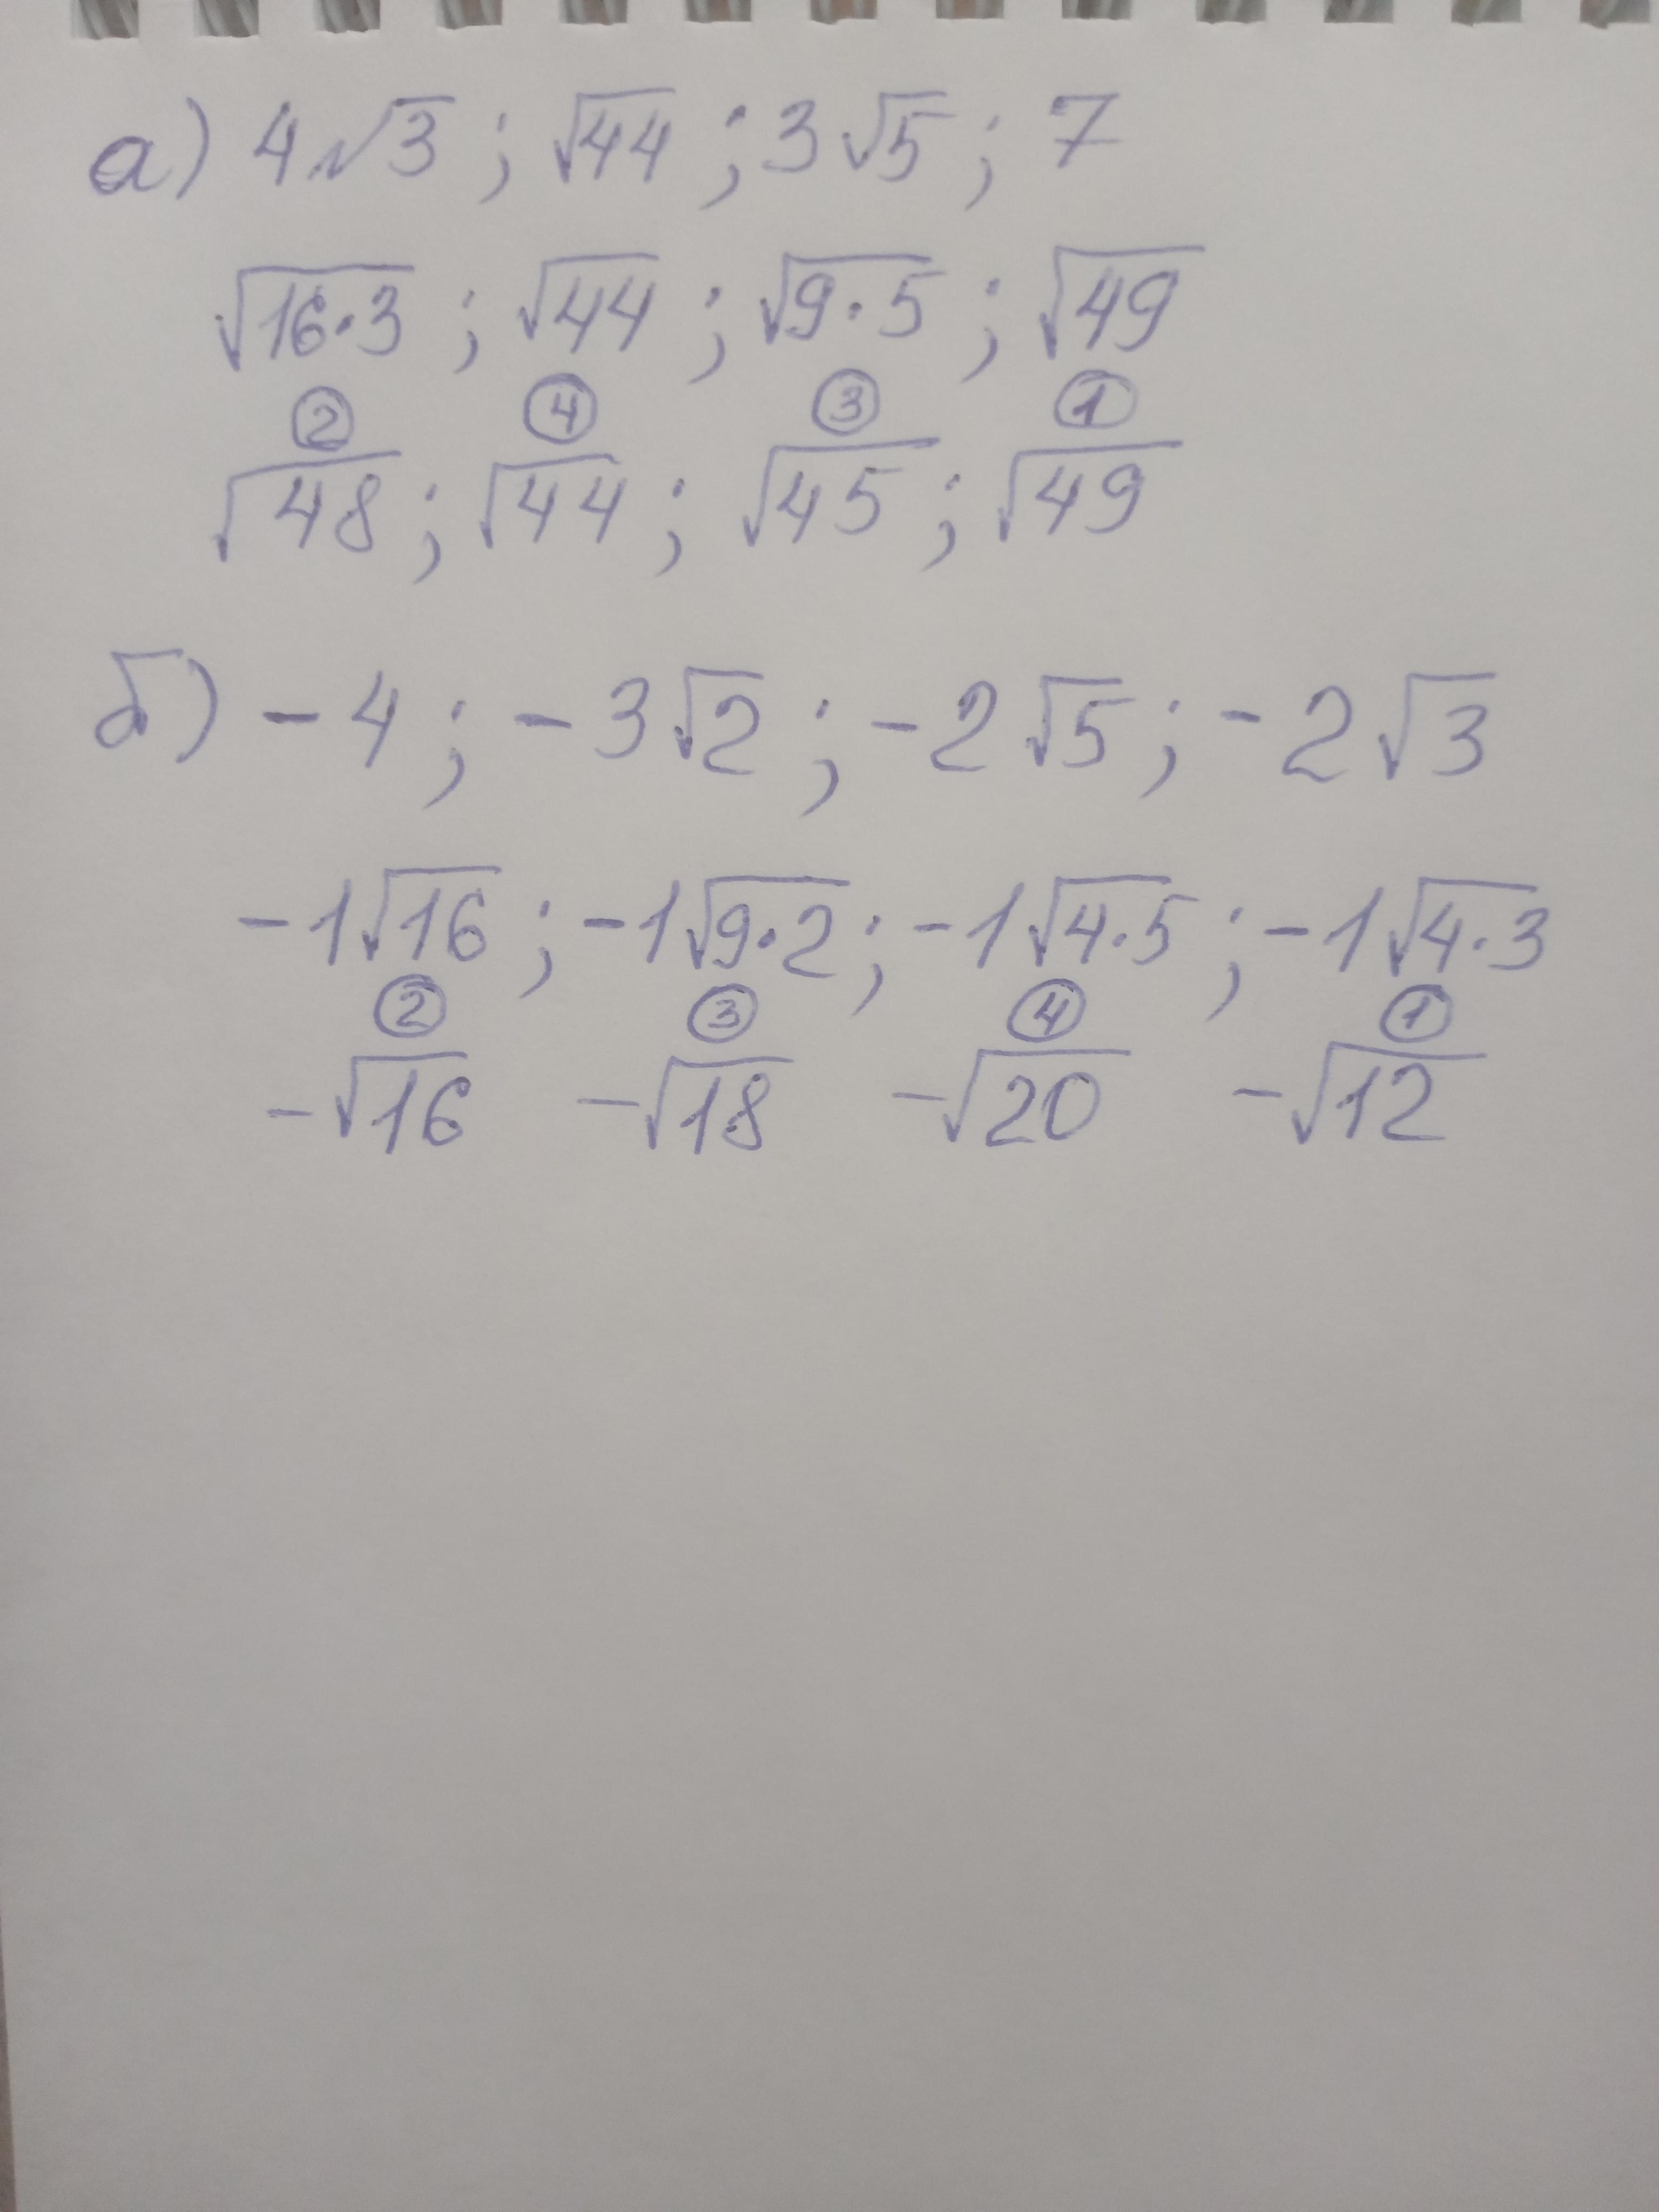 а) 4√3 ; √44 ; 3√5 ; 7
√16·3 ; √44 ; √9·5 ; √49
② ④ ③ ①
√48 ; √44 ; √45 ; √49
б) -4 ; -3√2 ; -2√5 ; -2√3
-1√16 ; -1√9·2 ; -1√4·5 ; -1√4·3
② ③ ④ ①
-√16 -√18 -√20 -√12